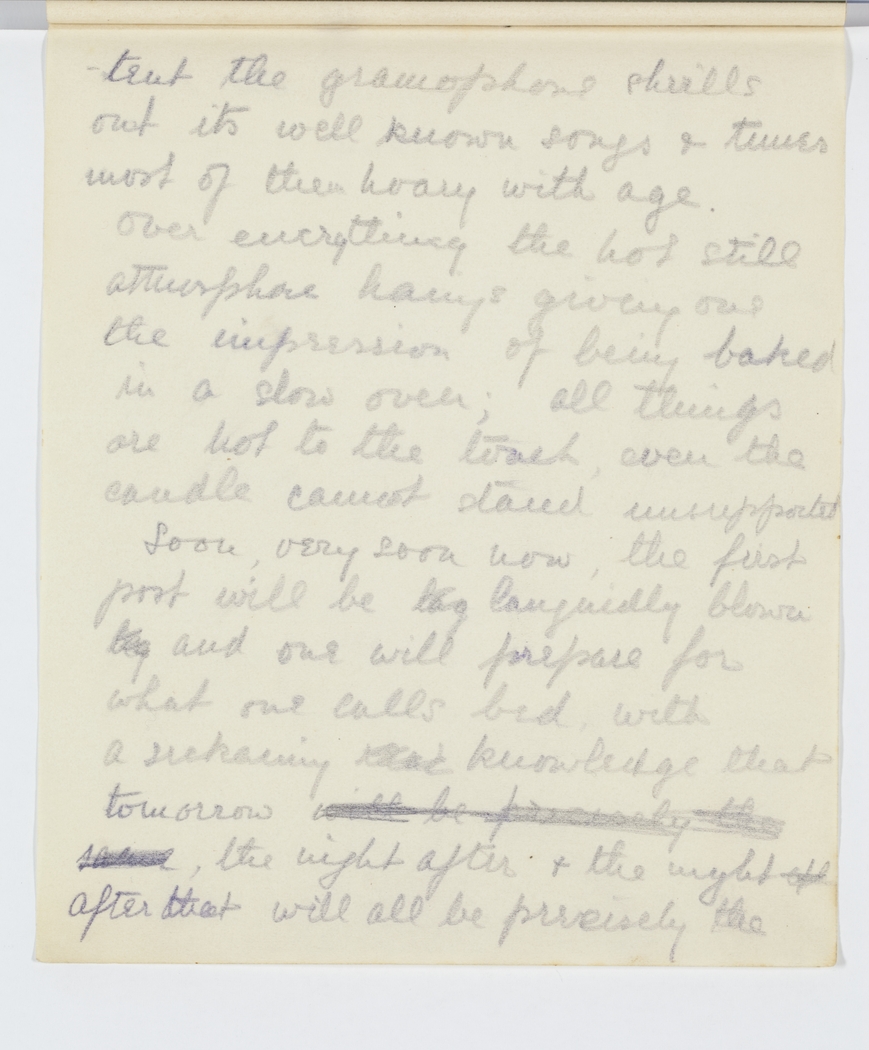 -tent the gramophone shrills
out its well known songs & tunes
most of them hoary with age.
Over everything the hot still
atmosphere hangs giving one
the impression of being baked
in a slow oven; all things
are hot to the touch, even the
candle cannot stand unsupported
Soon, very soon now, the first
post will be languidly blown
and one will prepare for
what one calls bed, with
a sickening knowledge that
tomorrow will be precisely the
same, the night after & the night
after that will all be precisely the